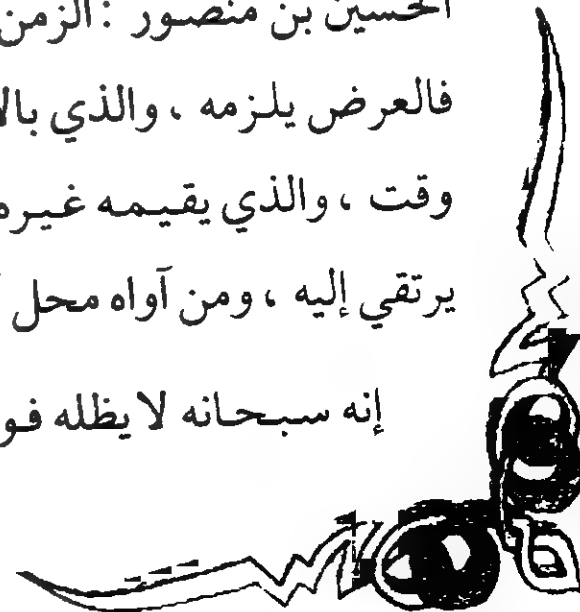 الحسين بن منصور : الزمن
فالعرض يلزمه ، والذي
وقت ، والذي يقيمه
يرتقي إليه ، ومن آواه محل
إنه سبحانه لا يظله